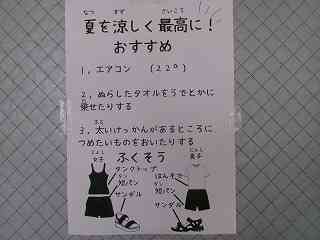 なつ すず さいこう
夏を涼しく最高に!
おすすめ
1, エアコン (22°)
2, ぬらしたタオルをうでとかに
乗せたりする
3, 太いけっかんがあるところに
つめたいものをおいたりする
ふくそう
じょし
女子
タンクトップ
短パン
サンダル
だんし
男子
短パン
サンダル